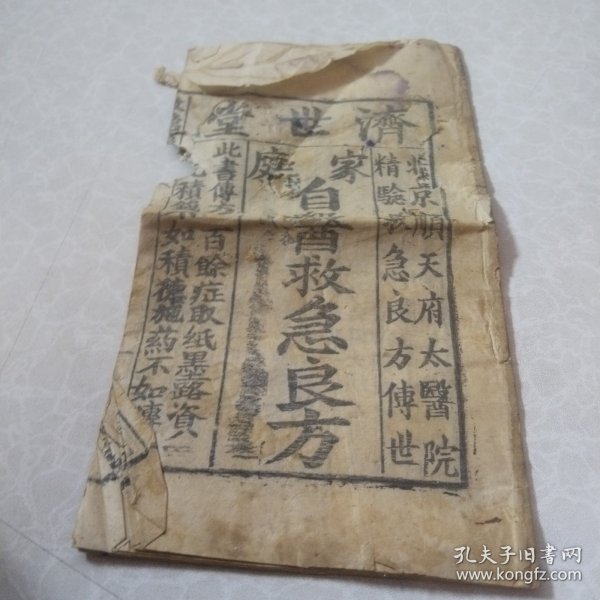 濟世堂
北京順天府太醫院
精驗救急良方傳世
家庭
自醫救急良方
此書傳方百餘症取纸墨路資八
積錢如積德施葯不如傳
孔夫子旧书网
www.kongfz.com